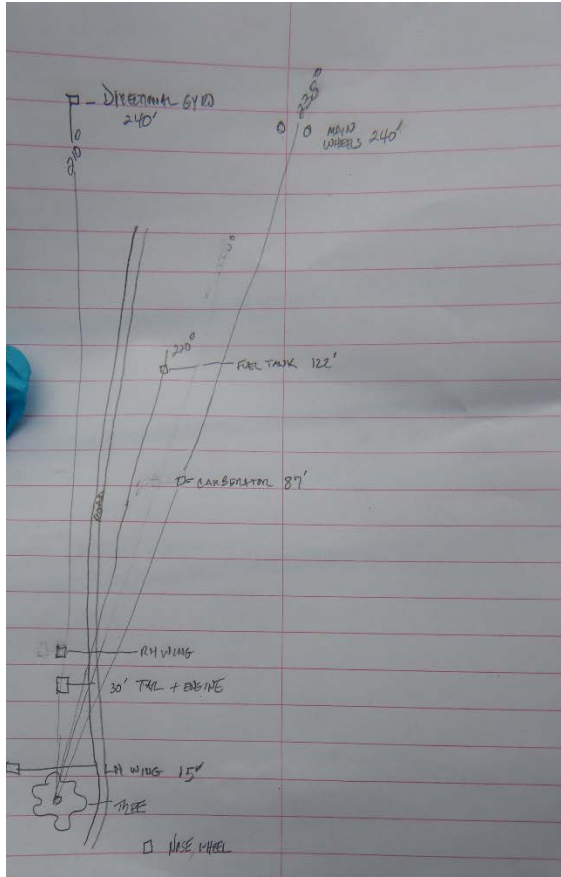 DIRECTIONAL GYRO
240'
210
225°
MAIN
WHEELS 240'
220°
FUEL TANK 122'
CARBERATOR 87'
ROAD
RH WING
30' TAIL + ENGINE
LH WING 15'
TREE
NOSE WHEEL